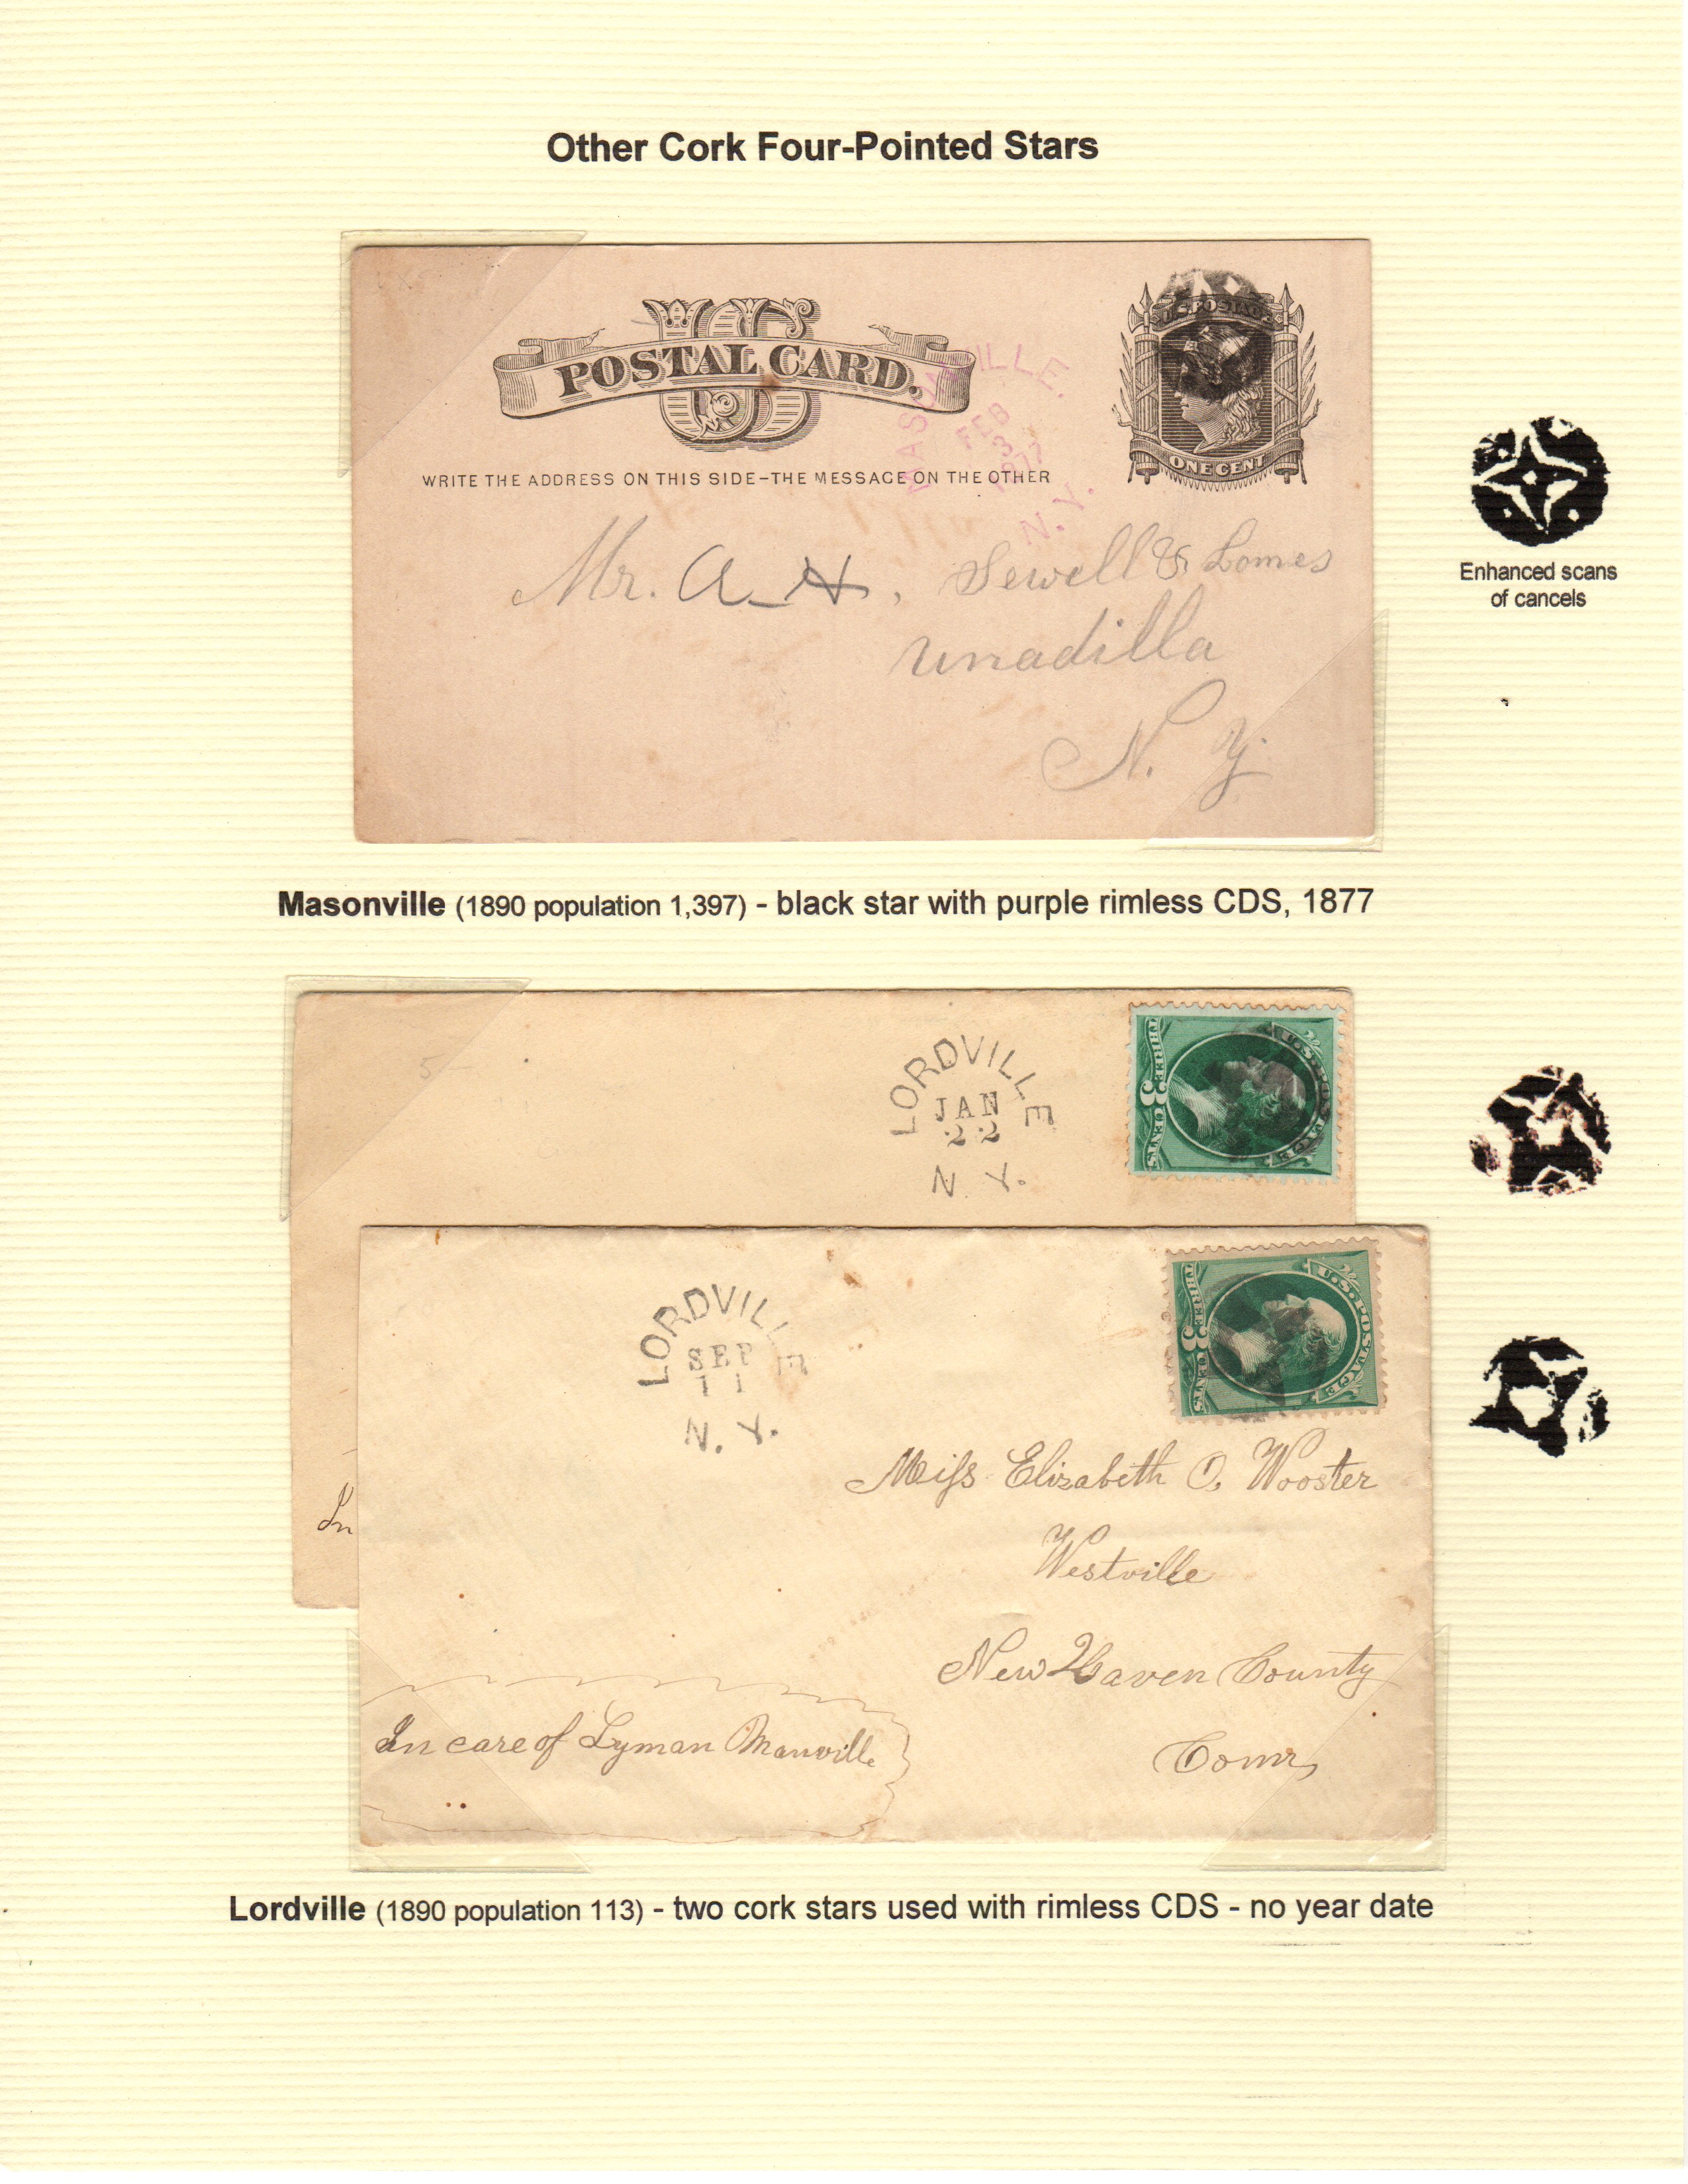 Other Cork Four-Pointed Stars
US
POSTAL CARD.
WRITE THE ADDRESS ON THIS SIDE-THE MESSAGE ON THE OTHER
MASONVILLE.
FEB
3
1877
N.Y.
U.S. POSTAGE
ONE CENT
Mr. A. H. Sewell & Lomes
Unadilla
N. Y.
Enhanced scans
of cancels
Masonville (1890 population 1,397) - black star with purple rimless CDS, 1877
5-
LORDVILLE
JAN
22
N. Y.
U.S. POSTAGE
THREE 3 CENTS
In
LORDVILLE
SEP
11
N. Y.
U.S. POSTAGE
THREE 3 CENTS
Miss Elizabeth O. Wooster
Westville
New Haven County
Conn,
In care of Lyman Manville
Lordville (1890 population 113) - two cork stars used with rimless CDS - no year date